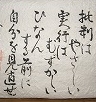 批判は
やさしい
実行は
むずかしい
ひなん
する前に
自分を見直せ